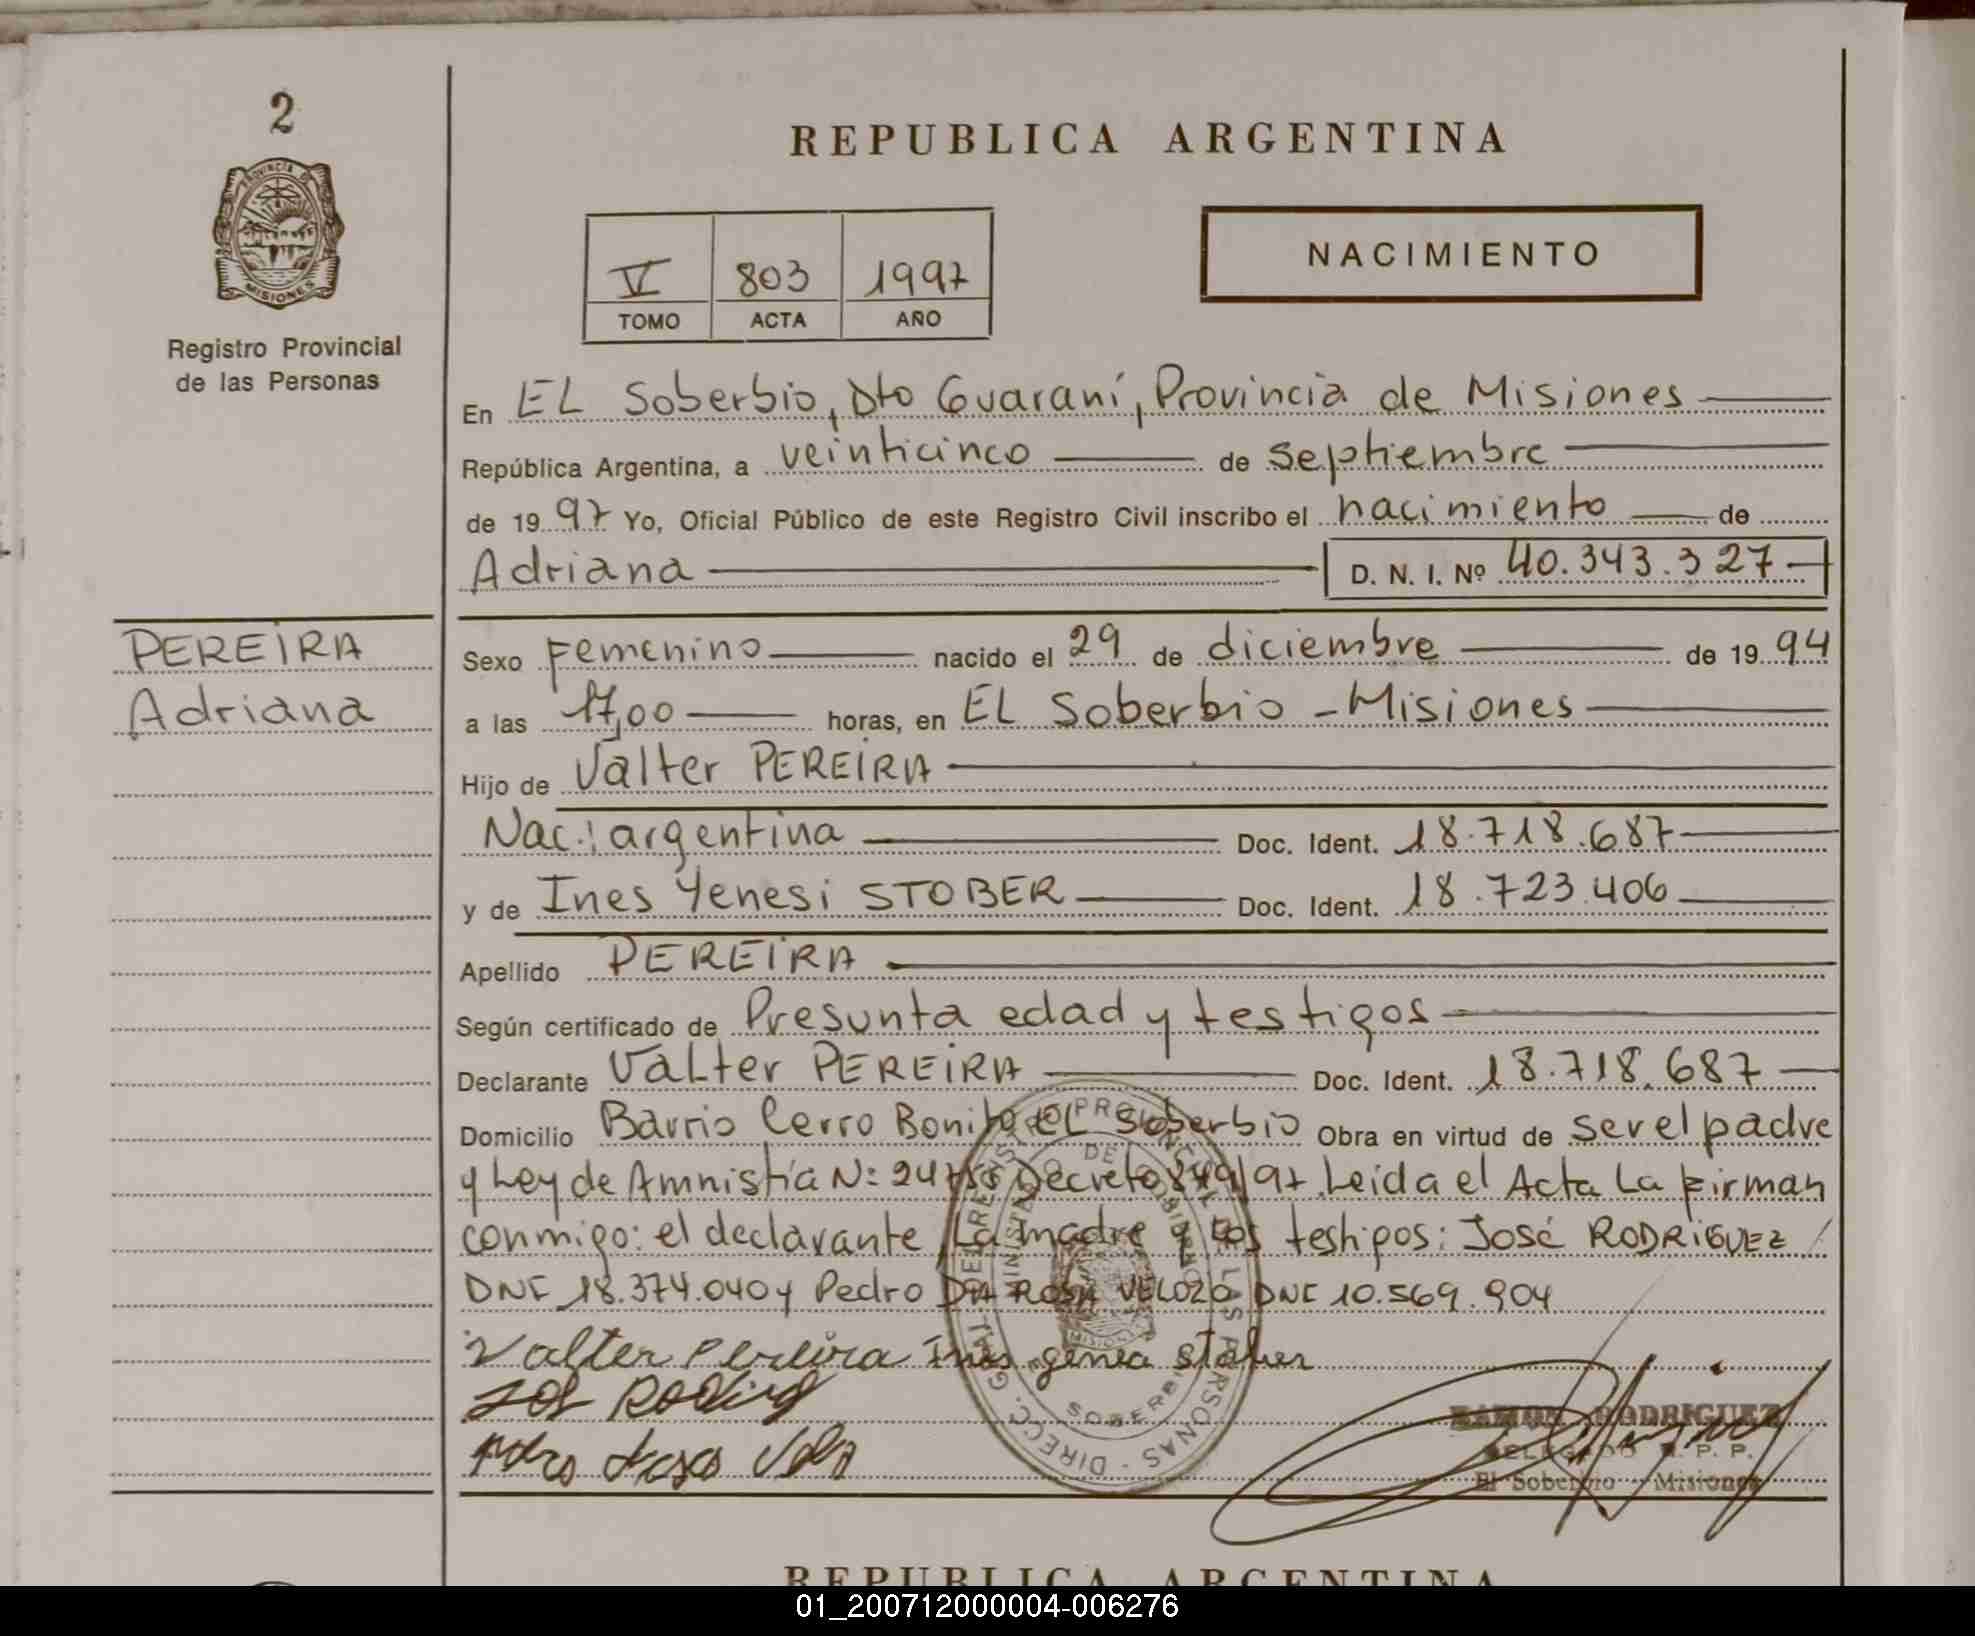 2
PROVINCIA DE
MISIONES
Registro Provincial
de las Personas
REPUBLICA ARGENTINA
V 803 1997
TOMO ACTA AÑO
NACIMIENTO
En EL Soberbio, Dto Guaraní, Provincia de Misiones
República Argentina, a veinticinco de septiembre
de 1997 Yo, Oficial Público de este Registro Civil inscribo el nacimiento de
Adriana D. N. I. Nº 40.343.327
PEREIRA
Adriana
Sexo Femenino nacido el 29 de diciembre de 1994
a las 17,00 horas, en EL Soberbio - Misiones
Hijo de Valter PEREIRA
Nac.: argentina Doc. Ident. 18.718.687
y de Ines Yenesi STOBER Doc. Ident. 18.723.406
Apellido PEREIRA
Según certificado de Presunta edad y testigos
Declarante Valter PEREIRA Doc. Ident. 18.718.687
Domicilio Barrio Cerro Bonito EL Soberbio Obra en virtud de ser el padre
y Ley de Amnistía N: Decreto 849/97. Leída el Acta La firman
conmigo: el declarante, La madre y Los testigos: José RODRIGUEZ
DNI 18.374.040 y Pedro DA ROSA VELOZO DNI 10.569.904
Valter Pereira Ines genea stober
RAMON RODRIGUEZ
DELEGADO R. P. P.
El Soberbio - Misiones
REPUBLICA ARGENTINA
01_200712000004-006276